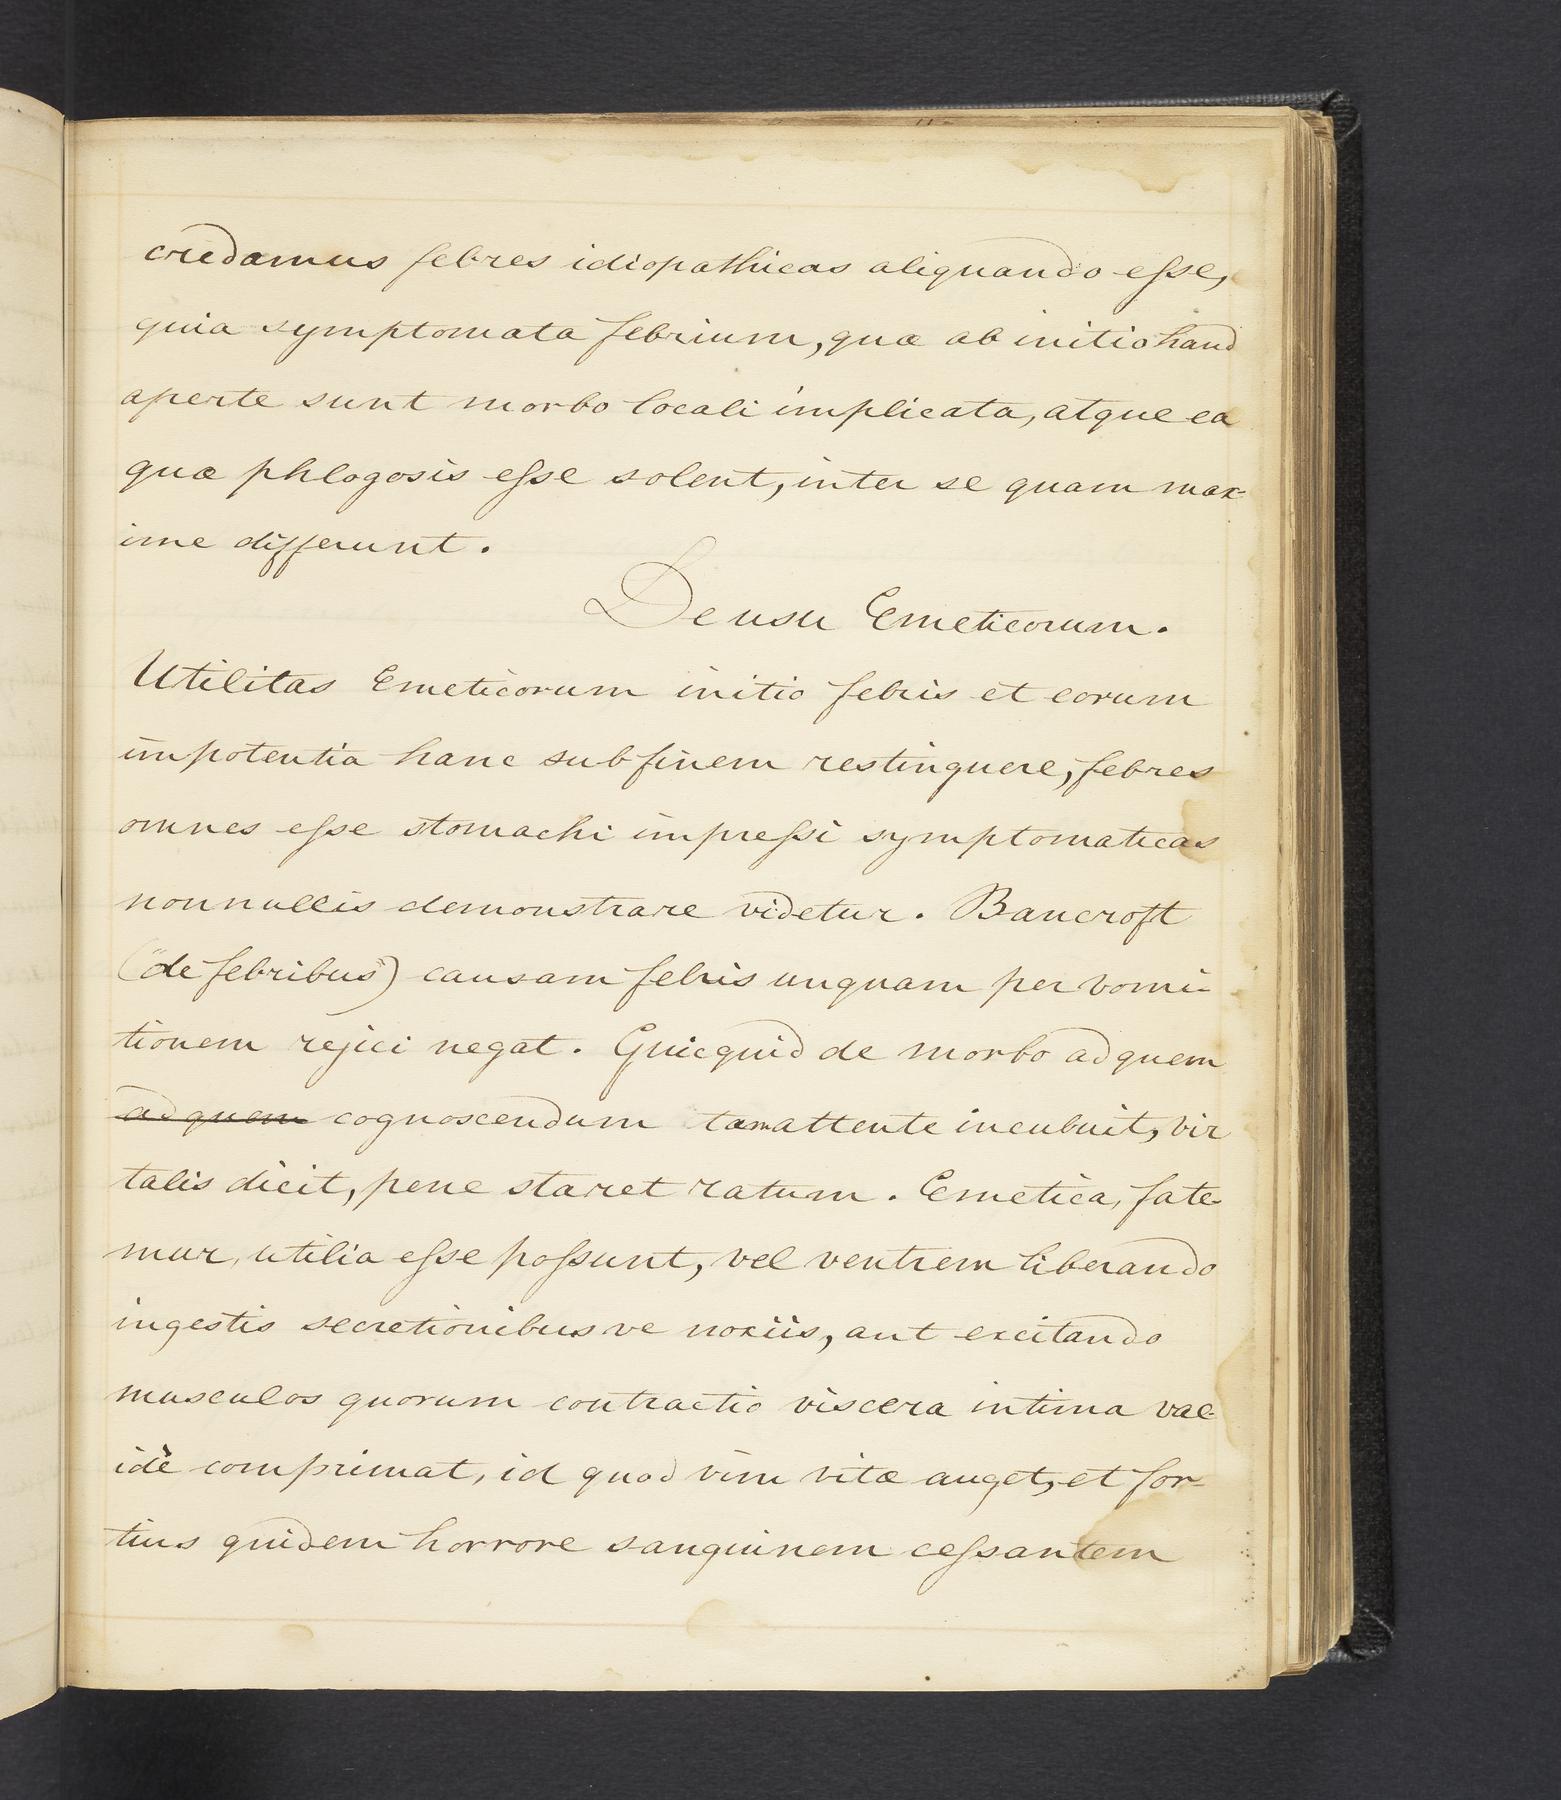 credamus febres idiopathicas aliquando eſse,
quia symptomata febrium, quæ ab initio haud
aperte sunt morbo locali implicata, atque ea
quæ phlogosis eſse solent, inter se quam max-
ime differunt.
De usu Emeticorum.
Utilitas Emeticorum initio febris et eorum
impotentia hanc sub finem restinguere, febres
omnes eſse stomachi impreſsi symptomaticas
nonnullis demonstrare videtur. Bancroft
("de febribus") causam febris unquam per vomi-
tionem rejici negat. Quicquid de morbo ad quem
ad quem cognoscendum tam attente incubuit, vir
talis dicit, pene staret ratum. Emetica, fate-
mur, utilia eſse poſsunt, vel ventrem liberando
ingestis secretionibus ve noxiis, aut excitando
musculos quorum contractio viscera intima val-
idè comprimat, id quod vim vitæ auget, et for-
tius quidem horrore sanguinem ceſsantem